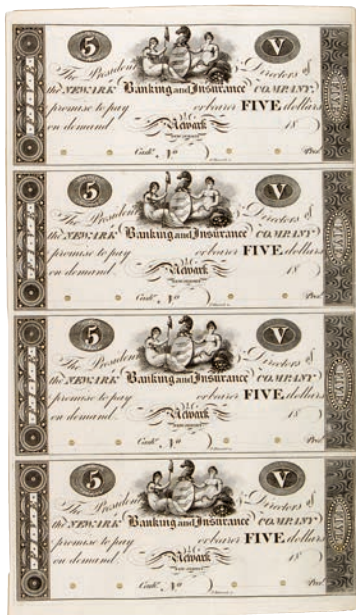 5 V
The President Directors of
the NEWARK Banking and Insurance COMPANY
promise to pay or bearer FIVE dollars
on demand. Newark 18
NEW JERSEY
Cash.r No Pres.t
5 V
The President Directors of
the NEWARK Banking and Insurance COMPANY
promise to pay or bearer FIVE dollars
on demand. Newark 18
NEW JERSEY
Cash.r No Pres.t
5 V
The President Directors of
the NEWARK Banking and Insurance COMPANY
promise to pay or bearer FIVE dollars
on demand. Newark 18
NEW JERSEY
Cash.r No Pres.t
5 V
The President Directors of
the NEWARK Banking and Insurance COMPANY
promise to pay or bearer FIVE dollars
on demand. Newark 18
NEW JERSEY
Cash.r No Pres.t